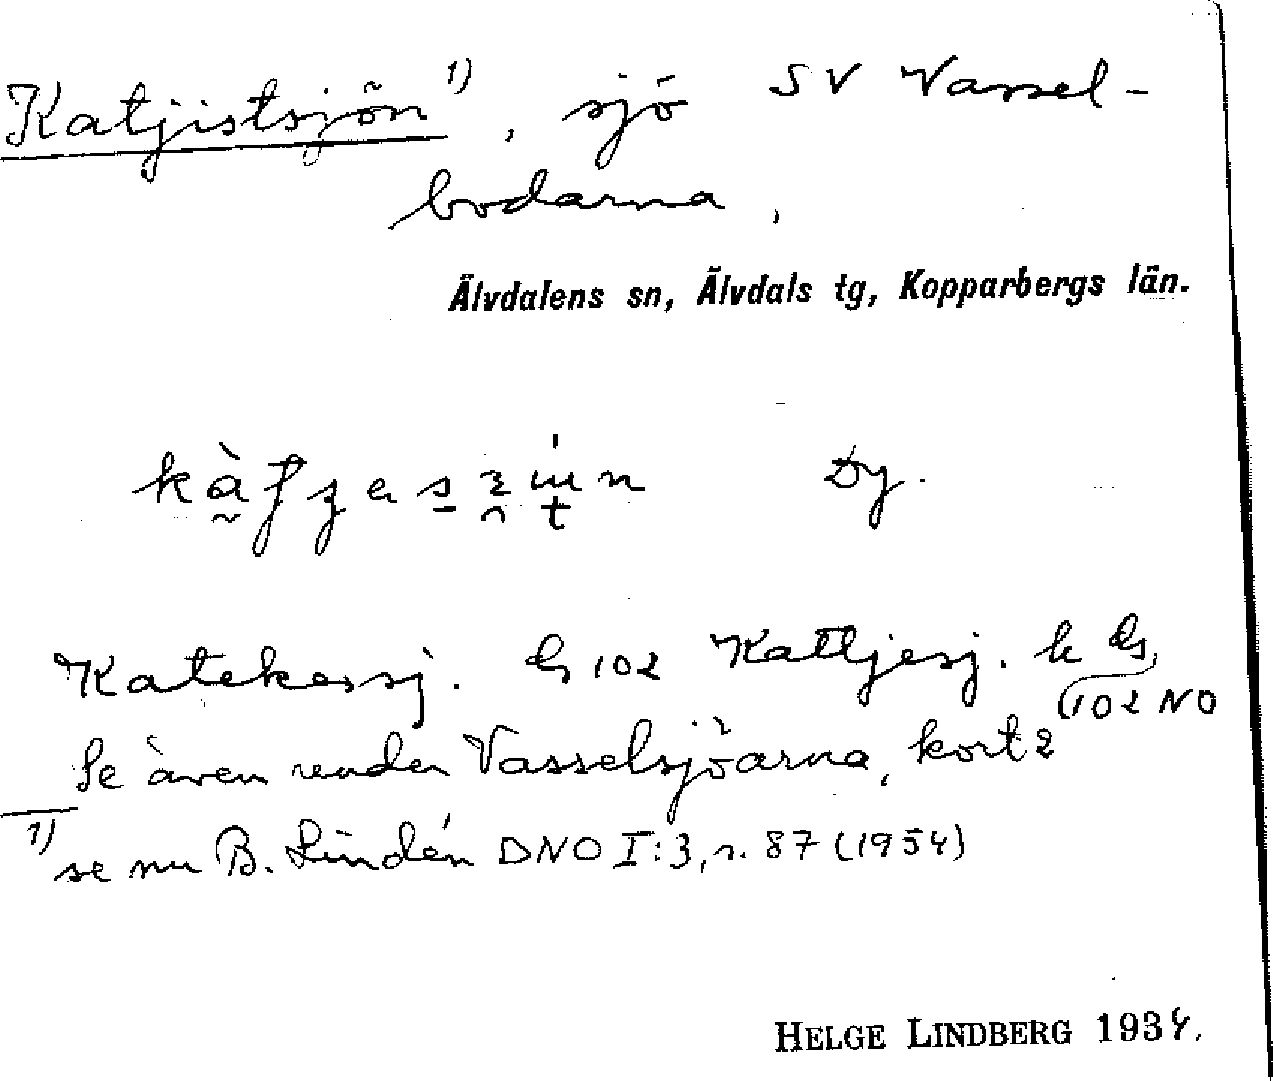 Katjistsjön 1), sjö SV Vassel-
bodarna,
Älvdalens sn, Älvdals tg, Kopparbergs län.
Dy.
Katekessj. G 102 Kattjesj. k G
102 NO
Se även under Vasselsjöarna, kort 2
1) se nu B. Lindén DNO I:3, s. 87 (1954)
HELGE LINDBERG 1934.